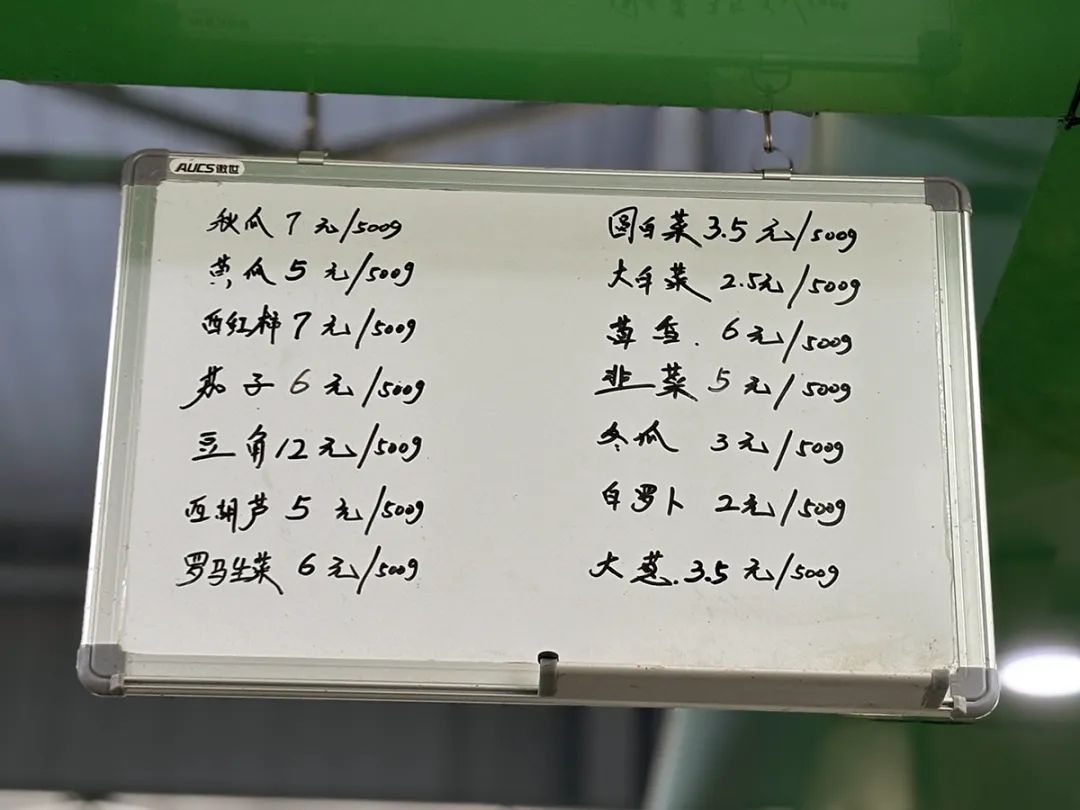 AUCS 傲世
秋瓜 7 元/500g
黄瓜 5 元/500g
西红柿 7 元/500g
茄子 6 元/500g
豆角 12 元/500g
西胡芦 5 元/500g
罗马生菜 6 元/500g
圆白菜 3.5 元/500g
大白菜 2.5元/500g
茴香. 6 元/500g
韭菜 5 元/500g
冬瓜 3 元/500g
白罗卜 2元/500g
大葱. 3.5 元/500g